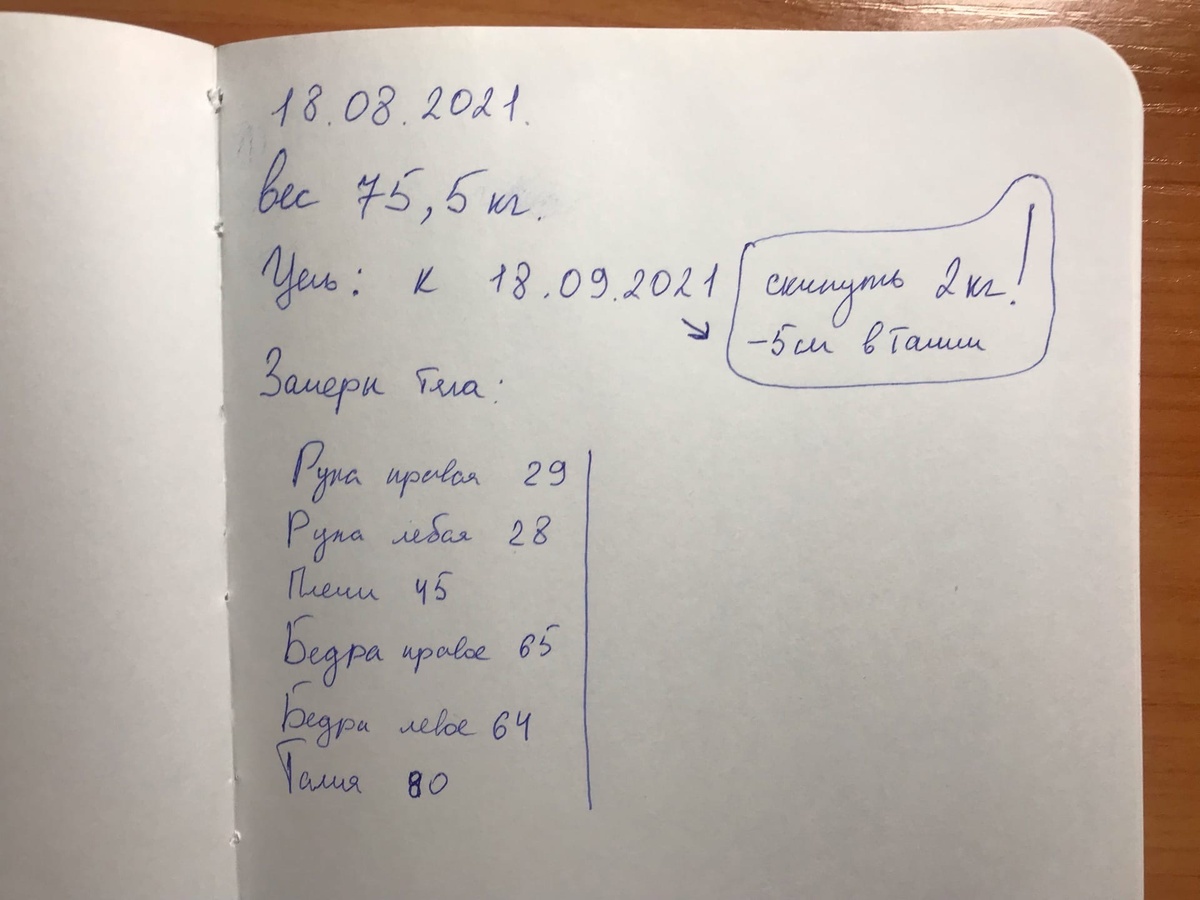 18.08.2021.
вес 75,5 кг.
Цель: к 18.09.2021
скинуть 2 кг!
-5 см в талии
Замеры тела:
Рука правая 29
Рука левая 28
Плечи 45
Бедра правое 65
Бедра левое 64
Талия 80